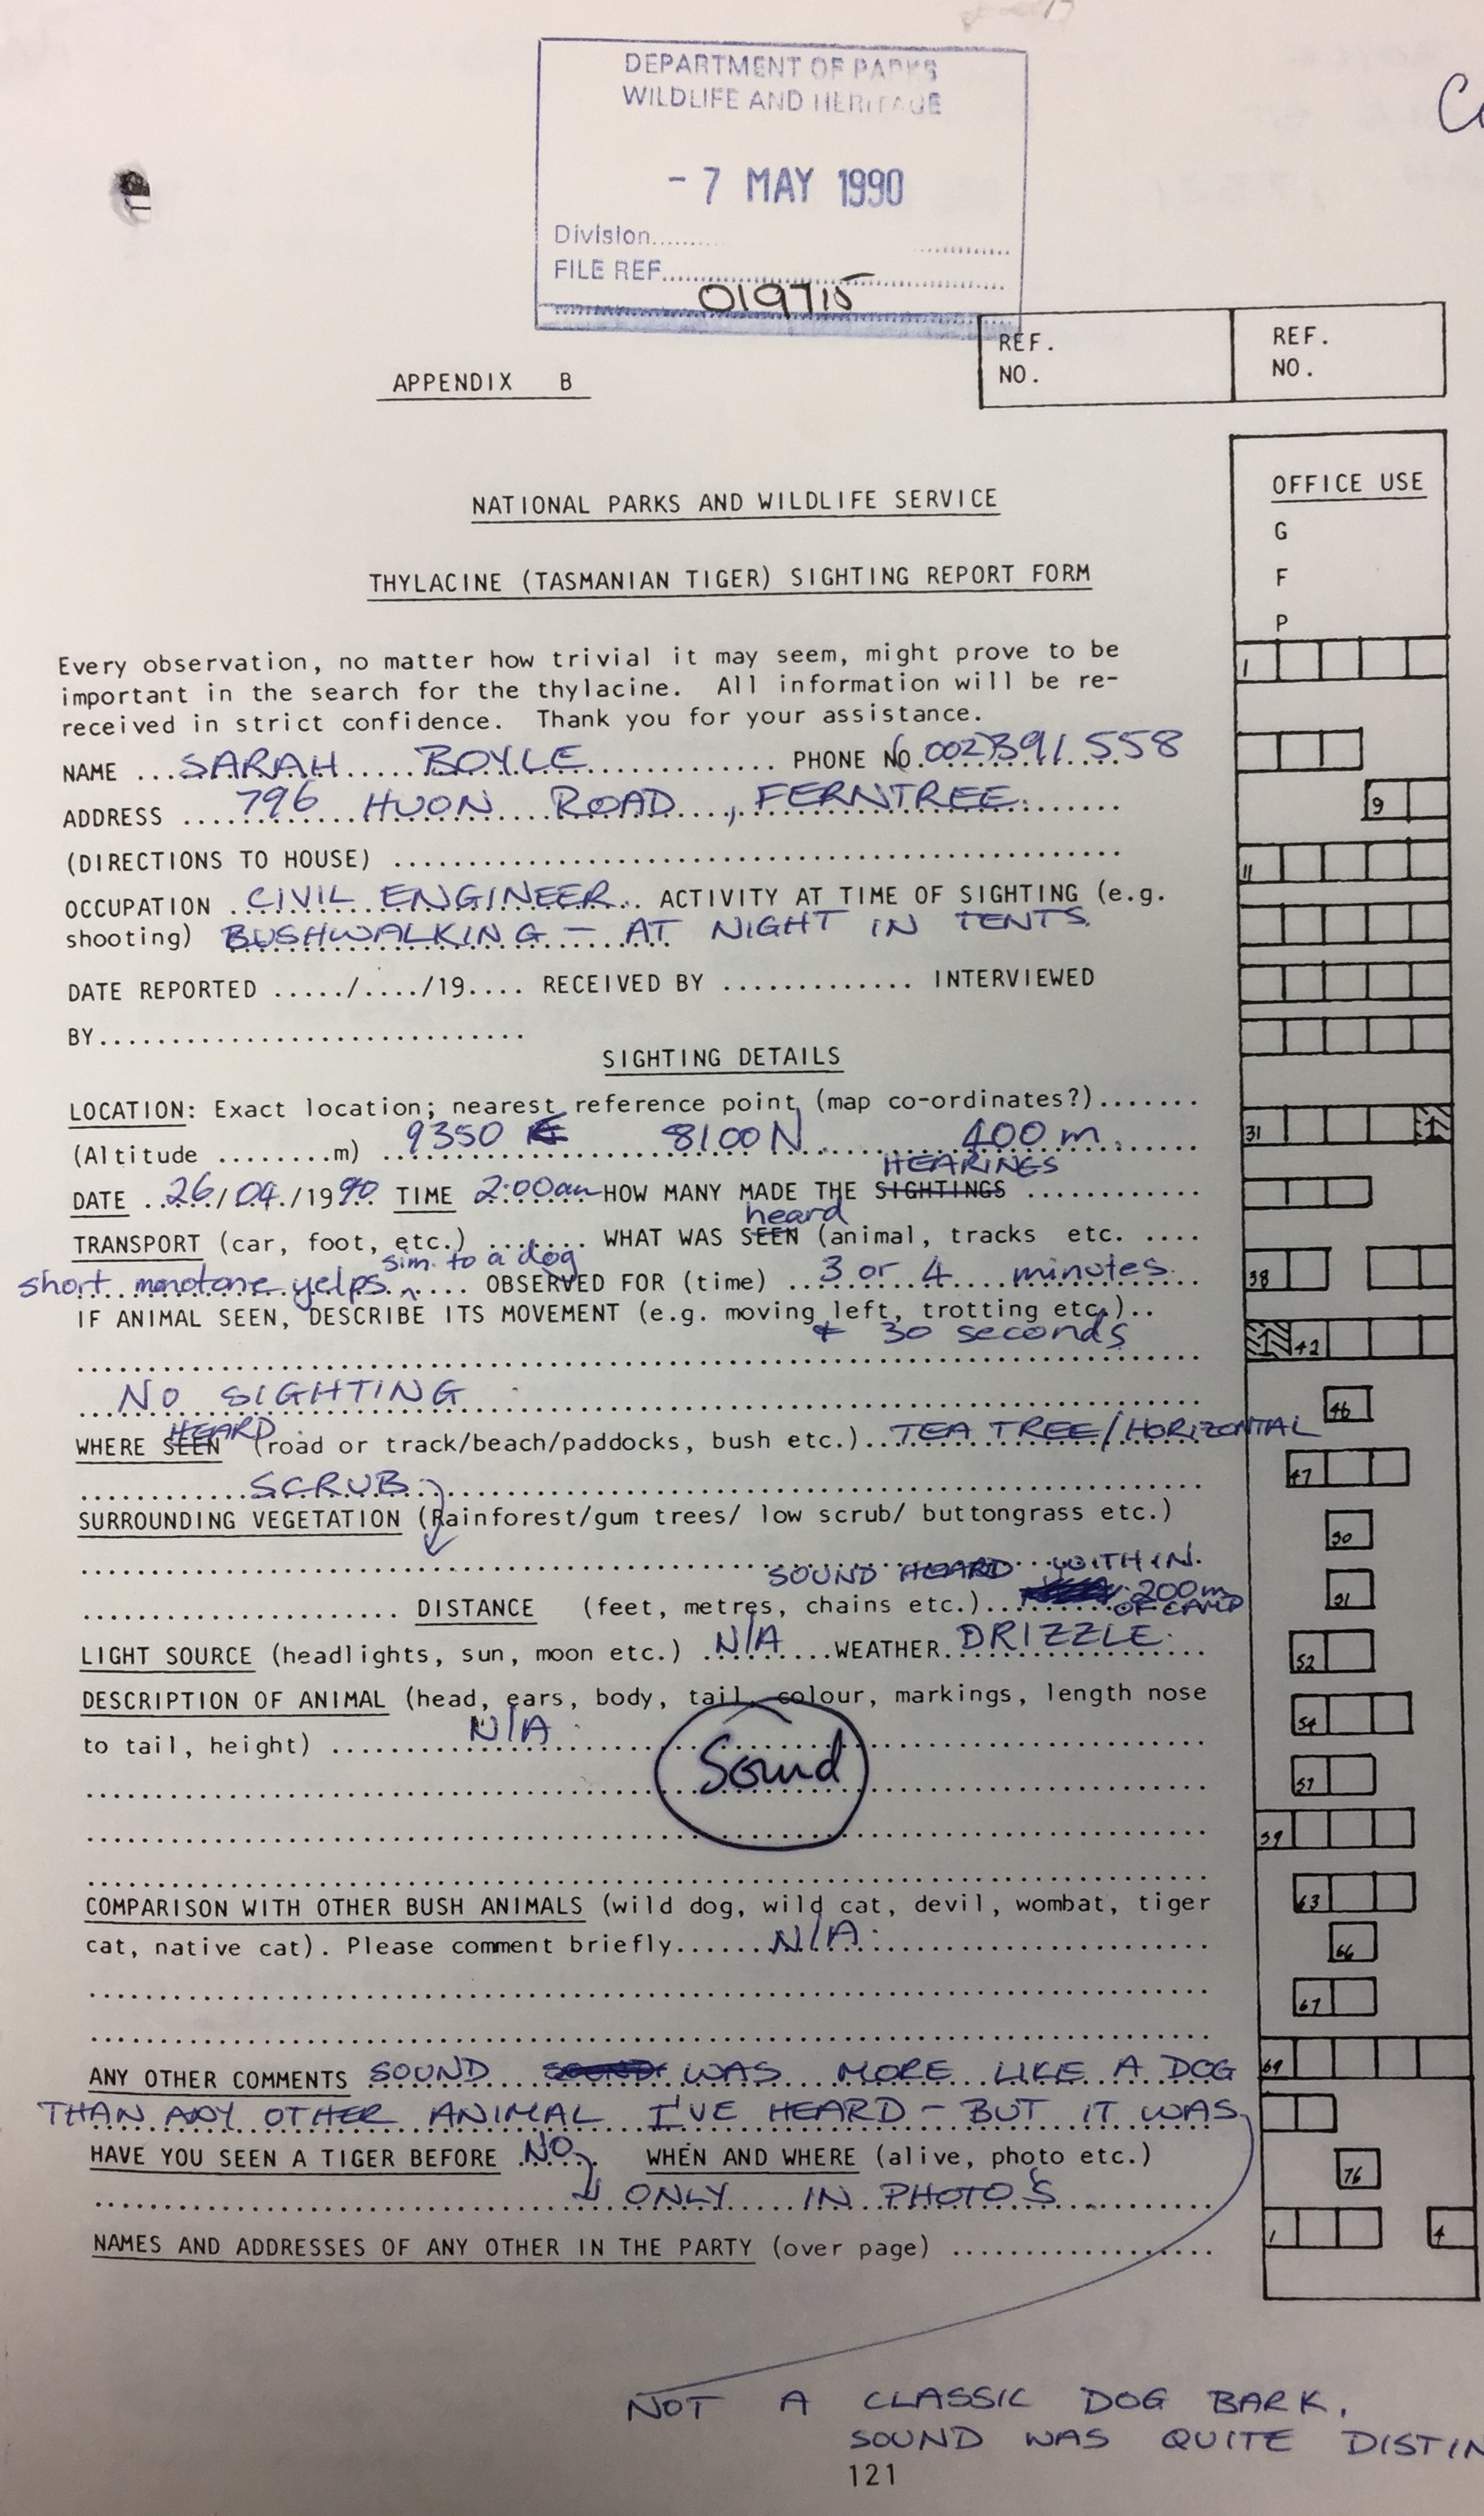 DEPARTMENT OF PARKS
WILDLIFE AND HERITAGE
- 7 MAY 1990
Division..........
FILE REF..........
019715
REF.
NO.
REF.
NO.
APPENDIX B
OFFICE USE
G
F
P
NATIONAL PARKS AND WILDLIFE SERVICE
THYLACINE (TASMANIAN TIGER) SIGHTING REPORT FORM
Every observation, no matter how trivial it may seem, might prove to be
important in the search for the thylacine. All information will be re-
received in strict confidence. Thank you for your assistance.
NAME ...SARAH BOYLE............ PHONE NO.(002)391558
ADDRESS ....796 HUON ROAD, FERNTREE.......
(DIRECTIONS TO HOUSE) ..................................................
OCCUPATION .CIVIL ENGINEER.. ACTIVITY AT TIME OF SIGHTING (e.g.
shooting) BUSHWALKING - AT NIGHT IN TENTS.
DATE REPORTED ...../..../19.... RECEIVED BY ............. INTERVIEWED
BY.............................
SIGHTING DETAILS
LOCATION: Exact location; nearest reference point (map co-ordinates?).......
(Altitude ........m) ..9350 E 8100N 400m.
HEARINGS
DATE ..26/04./1990 TIME 2:00am HOW MANY MADE THE SIGHTINGS ............
heard
TRANSPORT (car, foot, etc.) ....... WHAT WAS SEEN (animal, tracks etc. ....
sim. to a dog
short monotone yelps ^.... OBSERVED FOR (time) ..3 or 4 minutes
IF ANIMAL SEEN, DESCRIBE ITS MOVEMENT (e.g. moving left, trotting etc.)..
+ 30 seconds
...NO SIGHTING
HEARD
WHERE SEEN (road or track/beach/paddocks, bush etc.)..TEA TREE/HORIZONTAL
SCRUB.
SURROUNDING VEGETATION (Rainforest/gum trees/ low scrub/ buttongrass etc.)
SOUND HEARD WITHIN
200m
..................... DISTANCE (feet, metres, chains etc.)..OF CAMP
LIGHT SOURCE (headlights, sun, moon etc.) .N/A....WEATHER.DRIZZLE.
DESCRIPTION OF ANIMAL (head, ears, body, tail, colour, markings, length nose
to tail, height) .......N/A
Sound
COMPARISON WITH OTHER BUSH ANIMALS (wild dog, wild cat, devil, wombat, tiger
cat, native cat). Please comment briefly......N/A.
ANY OTHER COMMENTS SOUND SOUND WAS MORE LIKE A DOG
THAN ANY OTHER ANIMAL I'VE HEARD - BUT IT WAS
HAVE YOU SEEN A TIGER BEFORE .NO.. WHEN AND WHERE (alive, photo etc.)
ONLY IN PHOTO'S
NAMES AND ADDRESSES OF ANY OTHER IN THE PARTY (over page) ..................
NOT A CLASSIC DOG BARK.
SOUND WAS QUITE DISTIN
121
1
9
11
31
38
42
46
47
50
51
52
54
57
59
63
66
67
69
76
1
4